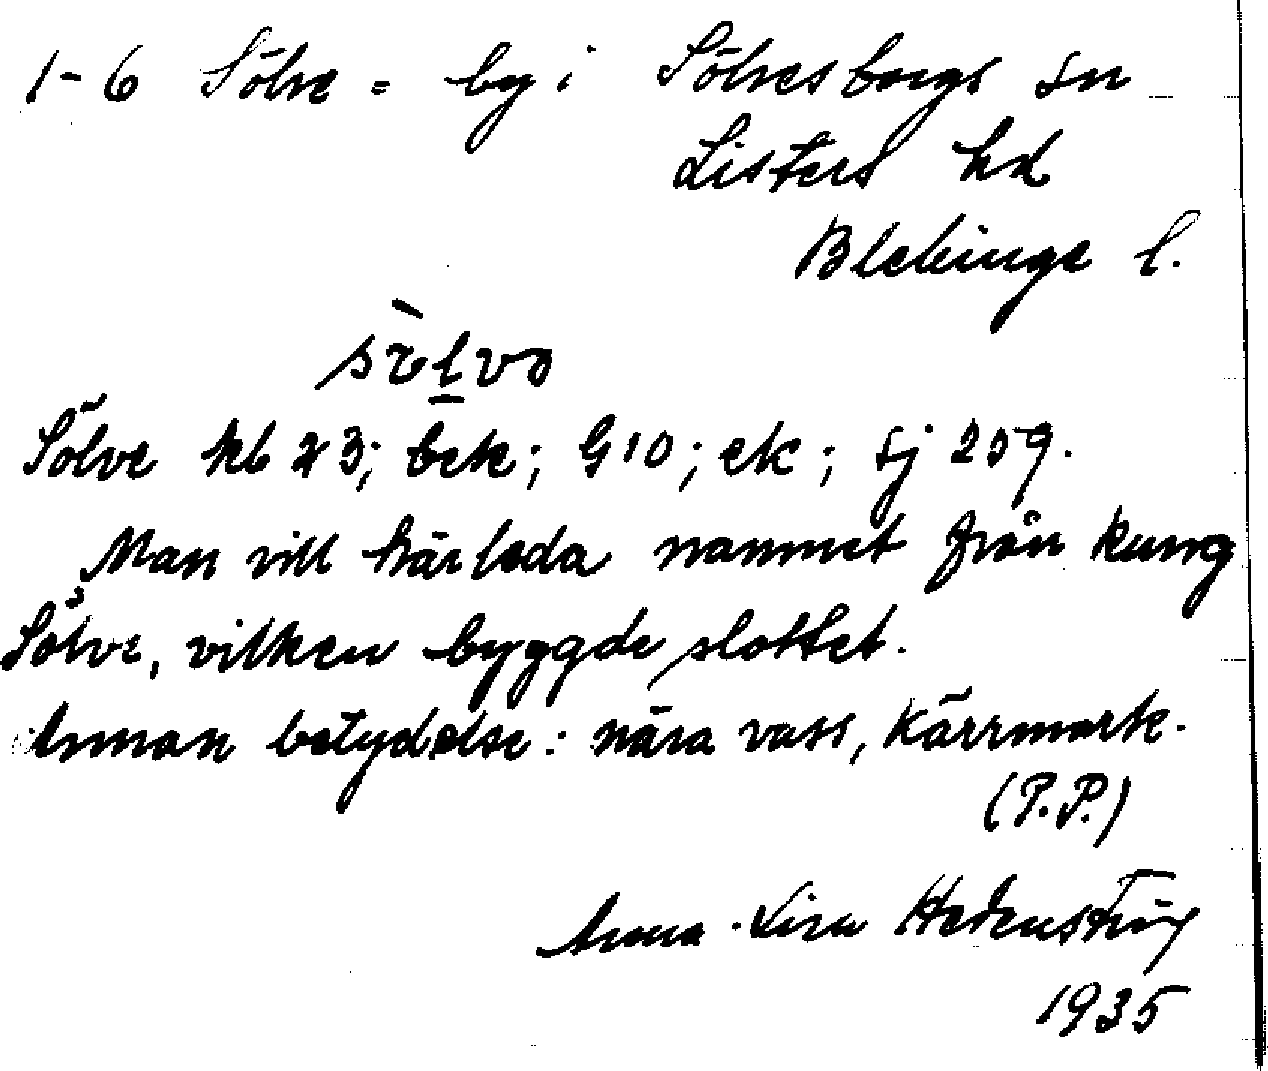 1-6 Sölve = by i Sölvesborgs sn
Listers hd
Blekinge l.
Sölve kb 23; bek; G10; ek; sj 259.
Man vill härleda namnet från kung
Sölve, vilken byggde slottet.
Annan betydelse: nära vass, kärrmark.
(P.P.)
Anna-Lisa
1935